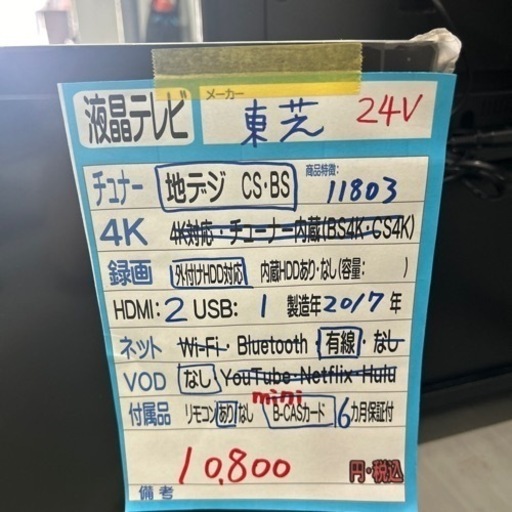 液晶テレビ
メーカー
東芝 24V
チューナー 地デジ CS・BS 商品特徴: 11803
4K 4K対応・チューナー内蔵(BS4K・CS4K)
録画 外付けHDD対応 内蔵HDDあり・なし(容量: )
HDMI: 2 USB: 1 製造年2017年
ネット Wi-Fi・Bluetooth・有線・なし
VOD なし YouTube・Netflix・Hulu
mini
付属品 リモコンあり/なし B-CASカード 6カ月保証付
10,800 円・税込
備考